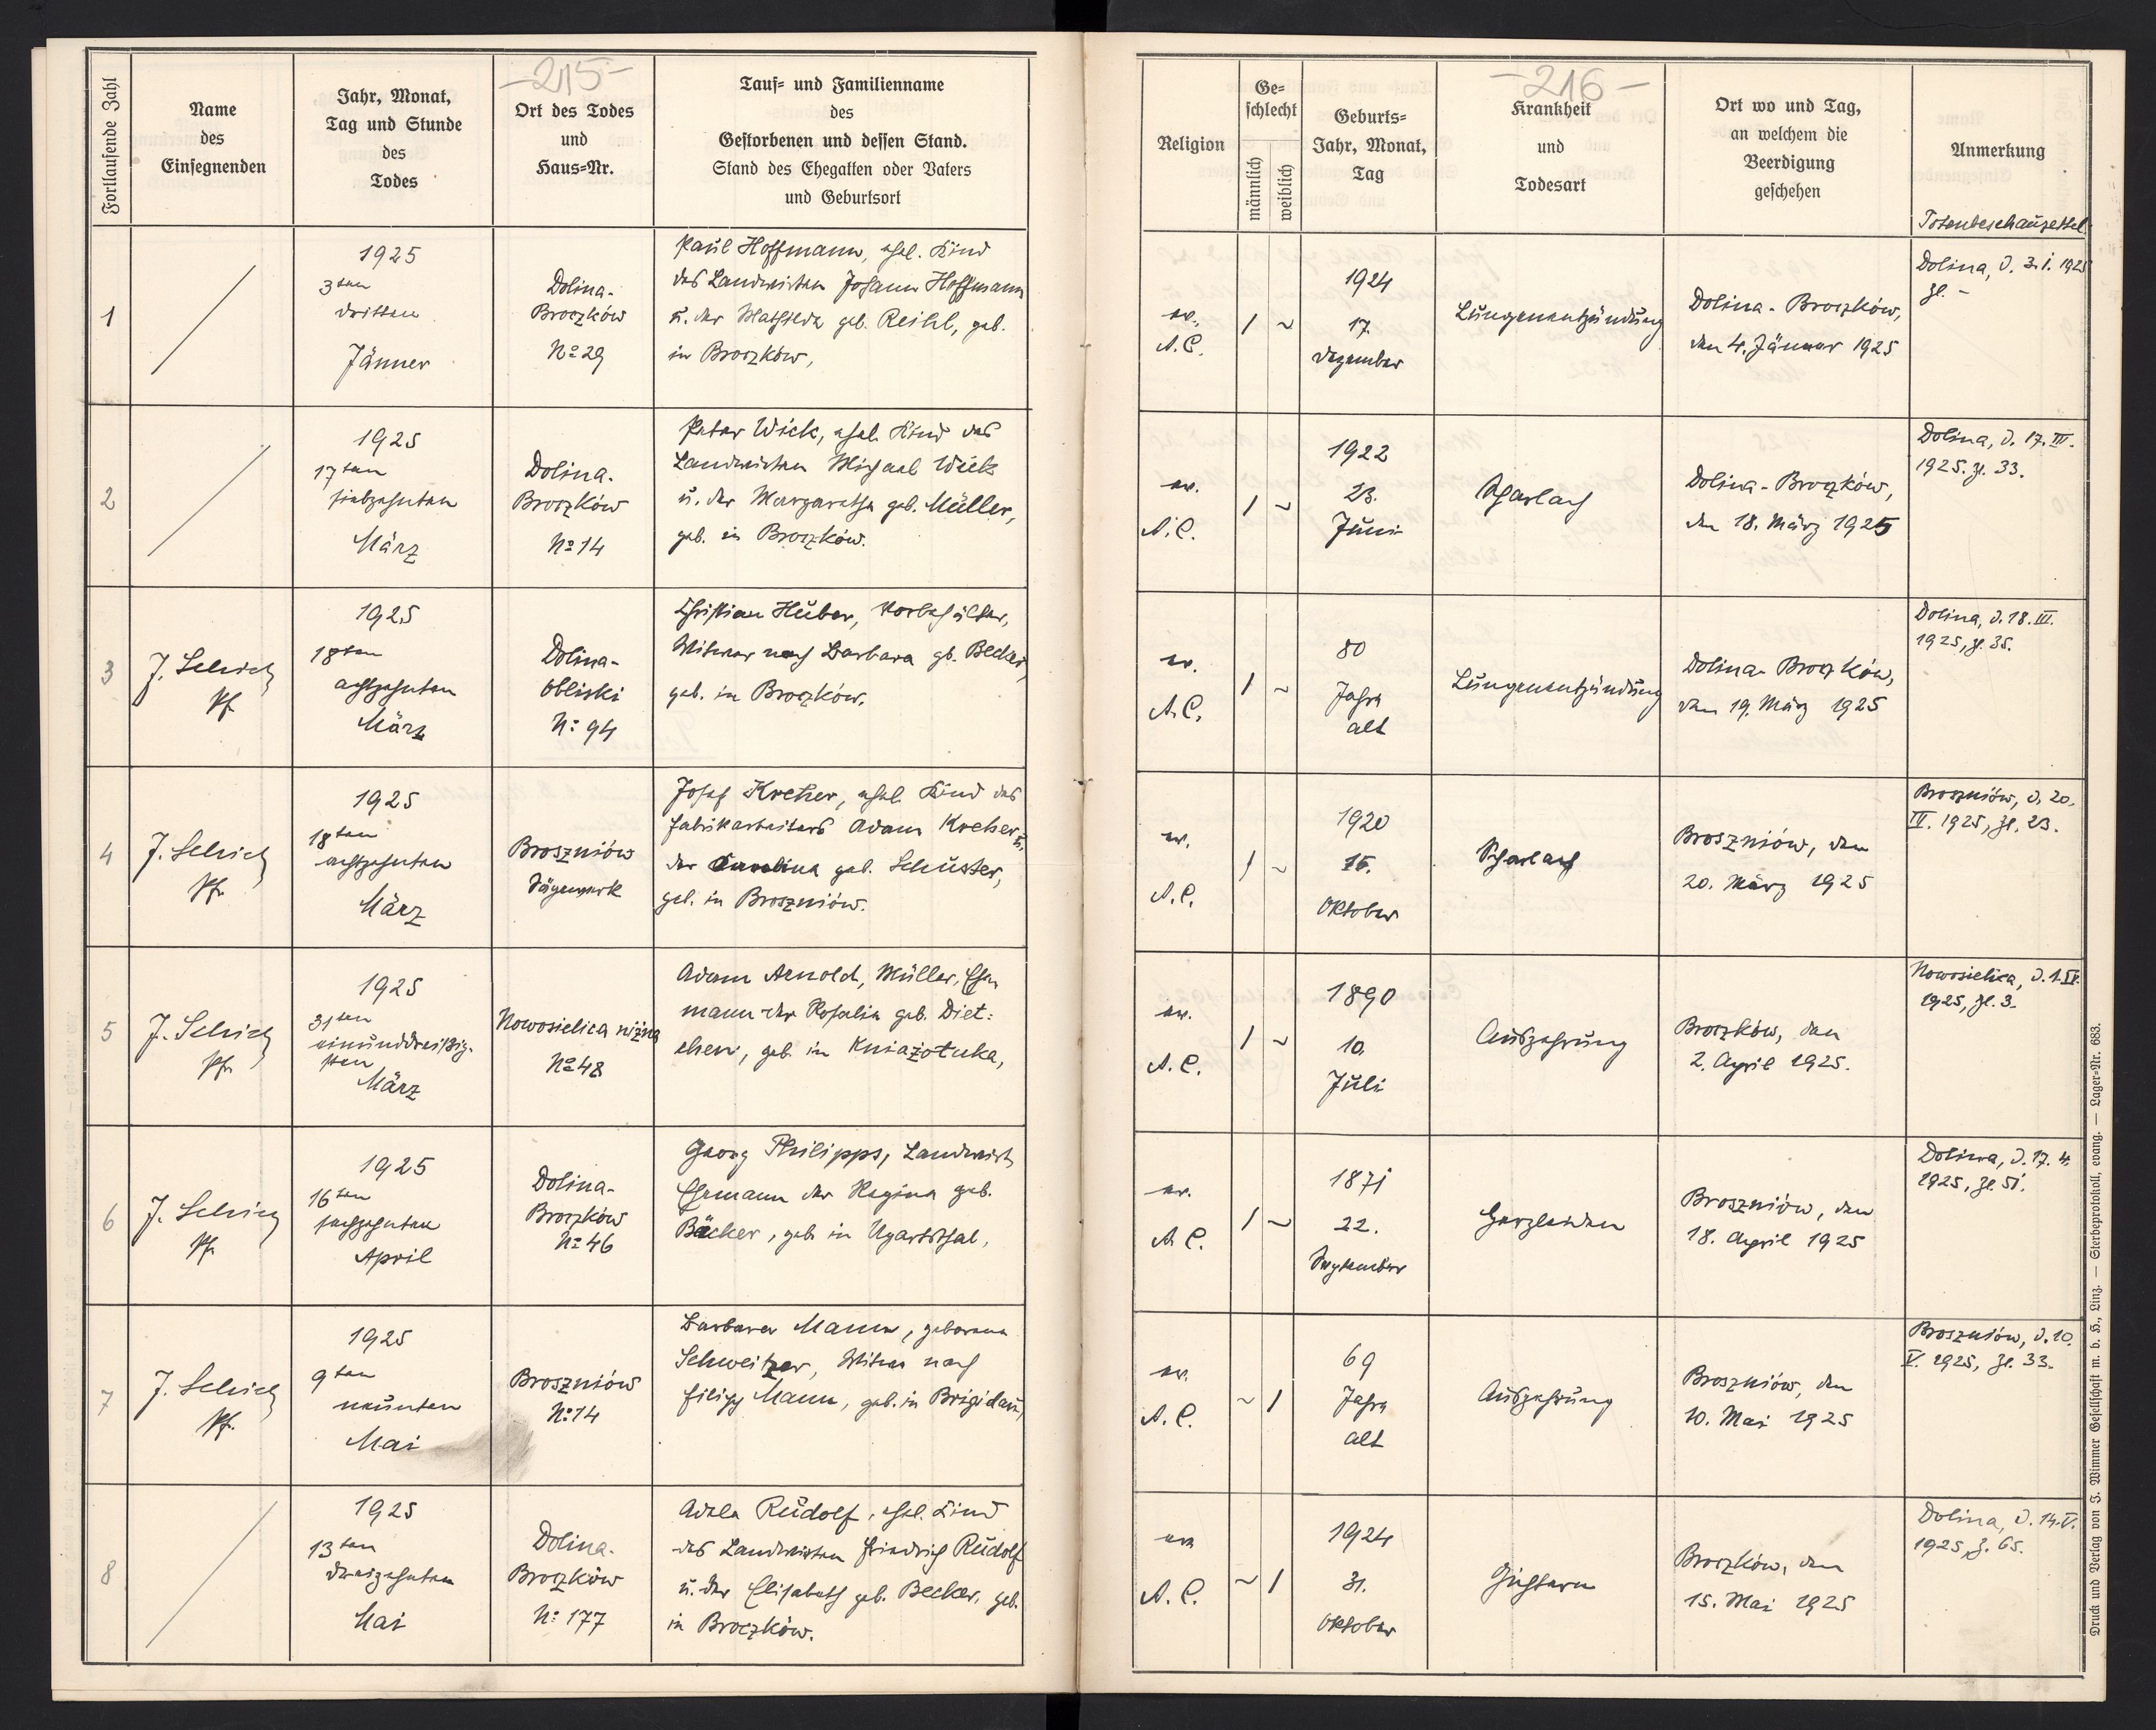 -215-
Fortlaufende Zahl
Name
des
Einsegnenden
Jahr, Monat,
Tag und Stunde
des
Todes
Ort des Todes
und
Haus=Nr.
Tauf= und Familienname
des
Gestorbenen und dessen Stand.
Stand des Ehegatten oder Vaters
und Geburtsort
1
1925
3ten
dritten
Jänner
Dolina-
Broczków
No 29
Paul Hoffmann, ehel. Kind
des Landwirten Johann Hoffmann
u. der Mathilde geb. Reihl, geb.
in Broczków,
2
1925
17ten
siebzehnten
März
Dolina-
Broczków
No 14
Peter Wick, ehel. Kind des
Landwirten Michael Wick
u. der Margaretha geb. Müller,
geb. in Broczków.
3
J. Schick
Pf.
1925
18ten
achtzehnten
März
Dolina-
Obliski
N: 94
Christian Huber, Vorbehälter,
Witwer nach Barbara gb. Becker,
geb. in Broczków.
4
J. Schick
Pf.
1925
18ten
achtzehnten
März
Broszniów
Sägewerk
Josef Kreher, ehel. Kind des
Fabrikarbeiters Adam Kreher u.
der Carolina geb. Schuster,
geb. in Broszniów.
5
J. Schick
Pf.
1925
31ten
einunddreißig-
sten
März
Nowosielica niżna
No 48
Adam Arnold, Müller, Ehe
mann der Rosalia geb. Diet:
chen, geb. in Kniaźołuka,
6
J. Schick
Pf.
1925
16ten
sechzehnten
April
Dolina-
Broczków
No 46
Georg Philipps, Landwirt,
Ehemann der Regina geb.
Bäcker, geb. in Ugartsthal,
7
J. Schick
Pf.
1925
9ten
neunten
Mai
Broszniów
No 14
Barbara Mann, geborene
Schweitzer, Witwe nach
Filipp Mann, geb. in Brigidau,
8
1925
13ten
dreizehnten
Mai
Dolina-
Broczków
N: 177
Adele Rudolf, ehel. Kind
des Landwirten Friedrich Rudolf
u. der Elisabeth geb. Becker, geb.
in Broczków.
-216-
Religion
Ge=
schlecht
männlich
weiblich
Geburts=
Jahr, Monat,
Tag
Krankheit
und
Todesart
Ort wo und Tag,
an welchem die
Beerdigung
geschehen
Anmerkung
Totenbeschauzettel
ev.
A.C.
1 ~
1924
17.
Dezember
Lungenentzündung
Dolina-Broczków,
den 4. Jänner 1925
Dolina, d. 3.I.1925
Zl. -
ev.
A.C.
1 ~
1922
23.
Juni
Scharlach
Dolina-Broczków,
den 18. März 1925
Dolina, d. 17.III.
1925. Zl. 33.
ev.
A.C.
1 ~
80
Jahre
alt
Lungenentzündung
Dolina-Broczków,
den 19. März 1925
Dolina, d. 18.III.
1925, Zl. 35.
ev.
A.C.
1 ~
1920
15.
Oktober
Scharlach
Broszniów, den
20. März 1925
Broszniów, d. 20.
IV. 1925, Zl. 23.
ev.
A.C.
1 ~
1890
10.
Juli
Auszehrung
Broczków, den
2. April 1925.
Nowosielica, d. 1.IV.
1925, Zl. 3.
ev.
A.C.
1 ~
1871
22.
September
Herzleiden
Broszniów, den
18. April 1925
Dolina, d. 17.4.
1925, Zl. 51.
ev.
A.C.
~ 1
69
Jahre
alt
Auszehrung
Broszniów, den
10. Mai 1925
Broszniów, d. 10.
V. 1925, Zl. 33.
ev.
A.C.
~ 1
1924
31.
Oktober
Broczków, den
15. Mai 1925
Dolina, d. 14.V.
1925, Z. 65.
Druck und Verlag von F. Wimmer Gesellschaft m. b. H., Linz. — Sterbeprotokoll, evang. — Lager=Nr. 683.